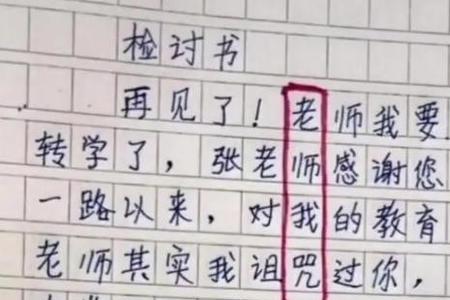 检讨书
再见了！老师我要
转学了，张老师感谢您
一路以来，对我的教育
老师其实我诅咒过你，